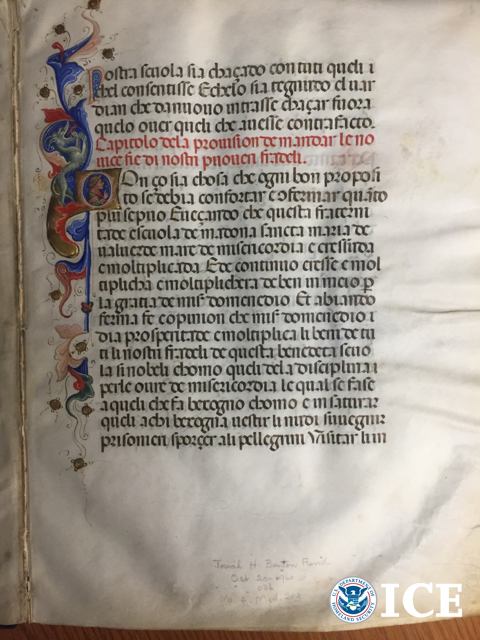 nostra scuola sia chaçado con tuti queli i
chel consentisse Echelo sia tegnudo el uar
dian che da nuouo intrasse chaçar fuora
quelo ouer queli che auesse contrafacto.
Capitolo dela prouision de mandar le no
uice sie di nostri poueri fradeli.
Conço sia chosa che ogni bon proposi
to se debia confortar e confermar quanto
piu se puo Ençardo che questa fraterni
tade e scuola de madona sancta maria de
ualuerde mare de misericordia e cressuda
e moltiplicada. E de continuo cresse e mol
tiplicha e moltiplichera de ben in meio p
la gratia de mis domenedio. Et abiando
ferma fe e opinion che mis domenedio i
dia prosperitade e moltiplica li beni de tu
ti li nostri fradeli de questa benedeta scuo
la si nobeli chomo queli dela disciplina i
per le oure de misericordia le qual se fa se
a queli che fa besogno chomo e in saturar
queli a chi besogna uestir li nudi souegnir
prisonieri sporçer ali pellegrini Visitar li in
Josiah H. Benton Fund
Oct
U.S. DEPARTMENT OF HOMELAND SECURITY
ICE